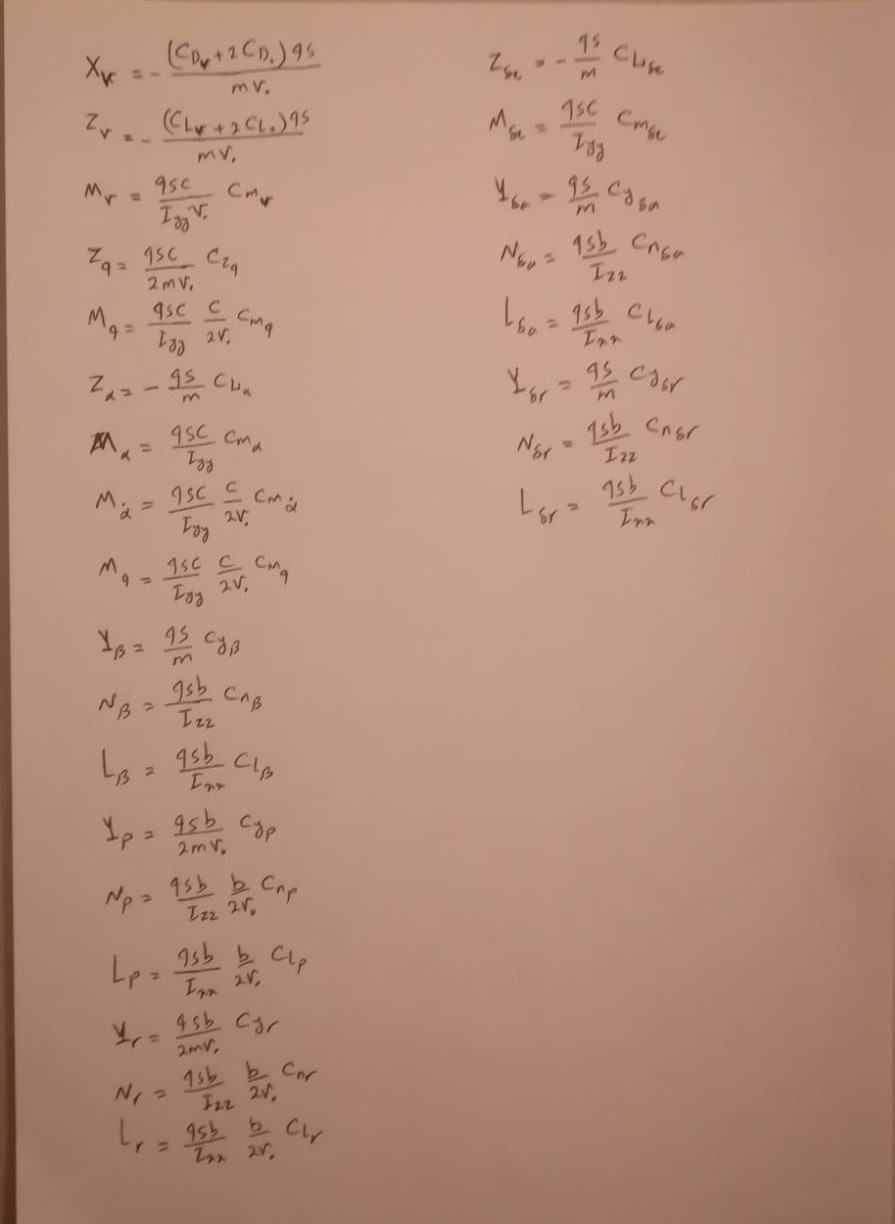 X_V = - (C_{D_V} + 2 C_{D_0}) qS / mV_0
Z_V = - (C_{L_V} + 2 C_{L_0}) qS / mV_0
M_V = qSC / I_{yy} V_0 C_{m_V}
Z_q = qSC / 2mV_0 C_{z_q}
M_q = qSC / I_{yy} C / 2V_0 C_{m_q}
Z_α = - qS / m C_{L_α}
M_α = qSC / I_{yy} C_{m_α}
M_α̇ = qSC / I_{yy} C / 2V_0 C_{m_α̇}
M_q = qSC / I_{yy} C / 2V_0 C_{m_q}
Y_β = qS / m C_{y_β}
N_β = qSb / I_{zz} C_{n_β}
L_β = qSb / I_{xx} C_{l_β}
Y_p = qSb / 2mV_0 C_{y_p}
N_p = qSb / I_{zz} b / 2V_0 C_{n_p}
L_p = qSb / I_{xx} b / 2V_0 C_{l_p}
Y_r = qSb / 2mV_0 C_{y_r}
N_r = qSb / I_{zz} b / 2V_0 C_{n_r}
L_r = qSb / I_{xx} b / 2V_0 C_{l_r}
Z_{δe} = - qS / m C_{L_{δe}}
M_{δe} = qSC / I_{yy} C_{m_{δe}}
Y_{δa} = qS / m C_{y_{δa}}
N_{δa} = qSb / I_{zz} C_{n_{δa}}
L_{δa} = qSb / I_{xx} C_{l_{δa}}
Y_{δr} = qS / m C_{y_{δr}}
N_{δr} = qSb / I_{zz} C_{n_{δr}}
L_{δr} = qSb / I_{xx} C_{l_{δr}}